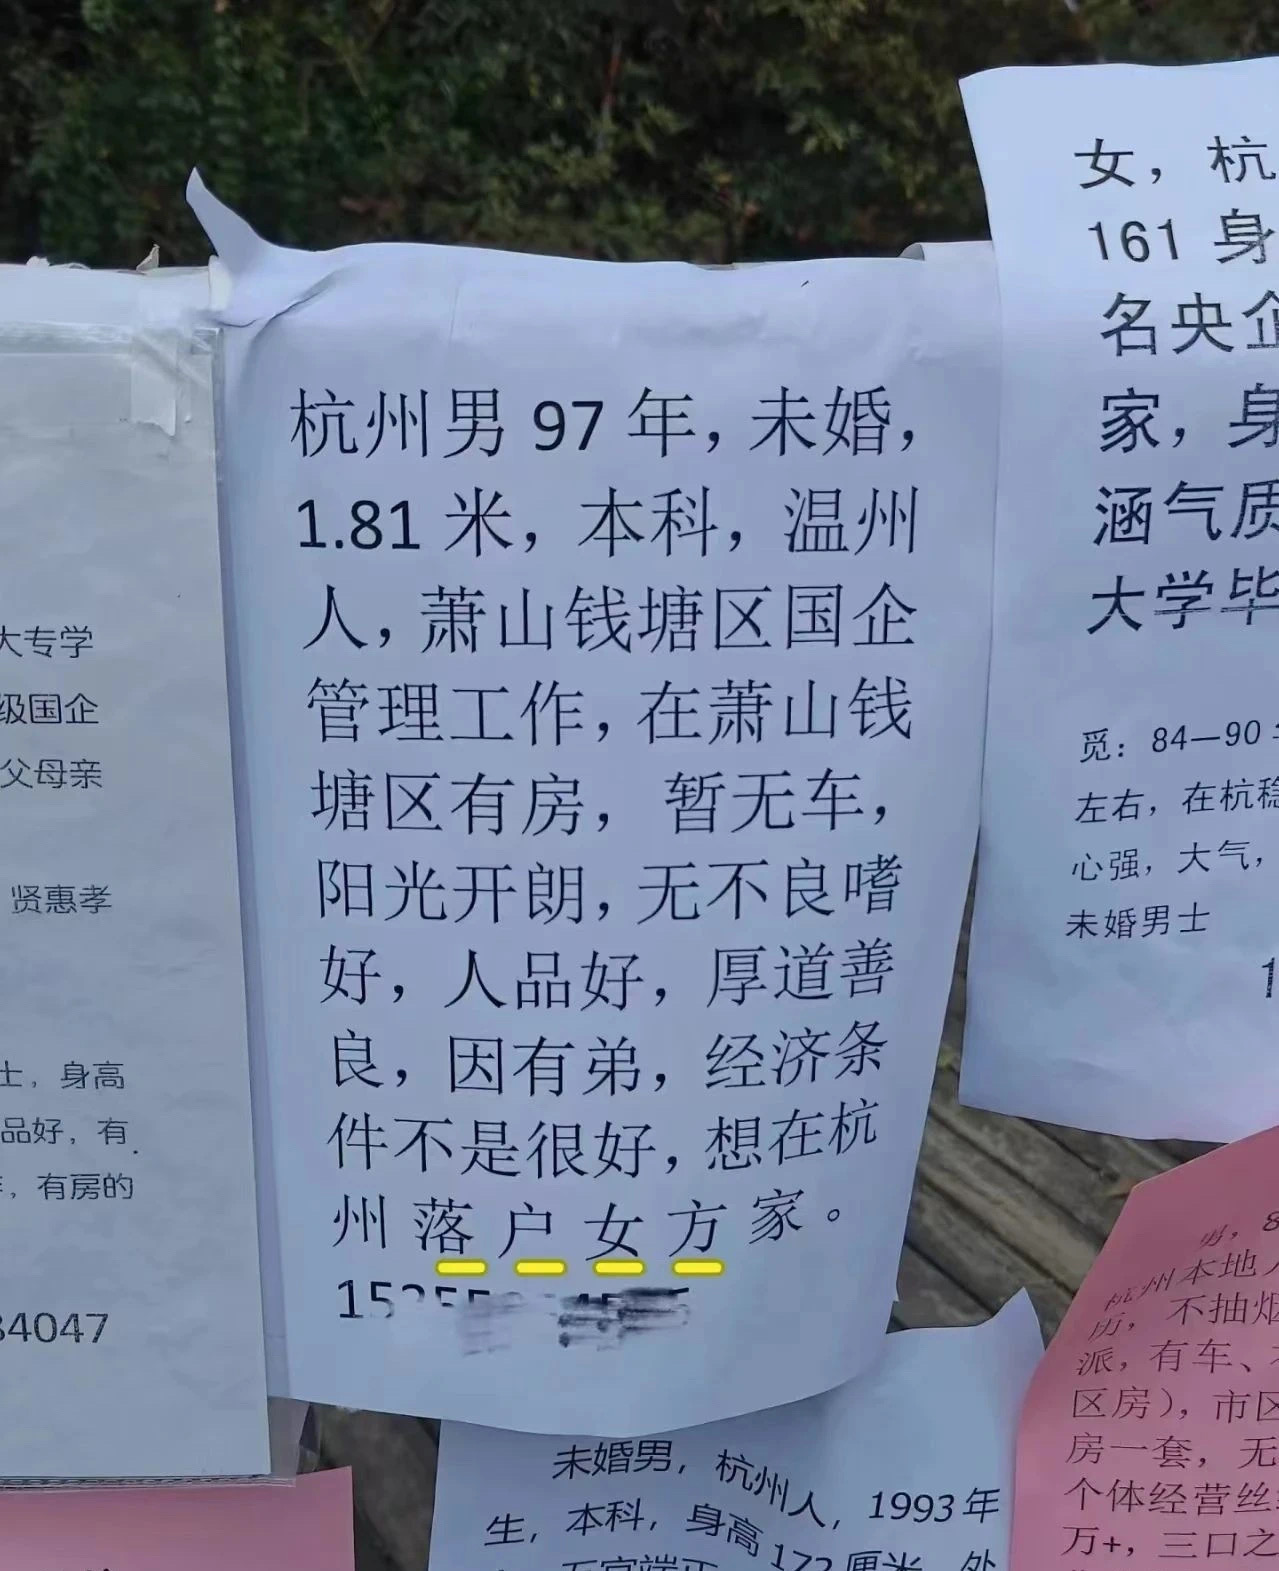 大专学
级国企
父母亲
贤惠孝
士，身高
品好，有
，有房的
34047
杭州男 97 年，未婚，
1.81 米，本科，温州
人，萧山钱塘区国企
管理工作，在萧山钱
塘区有房，暂无车，
阳光开朗，无不良嗜
好，人品好，厚道善
良，因有弟，经济条
件不是很好，想在杭
州落户女方家。
女，杭
161 身
名央企
家，身
涵气质
大学毕
觅：84—90
左右，在杭稳
心强，大气，
未婚男士
未婚男，杭州人，1993年
生，本科，身高172厘米，处
男，8
杭州本地人
历，不抽烟
派，有车、
区房），市区
房一套，无
个体经营丝
万+，三口之